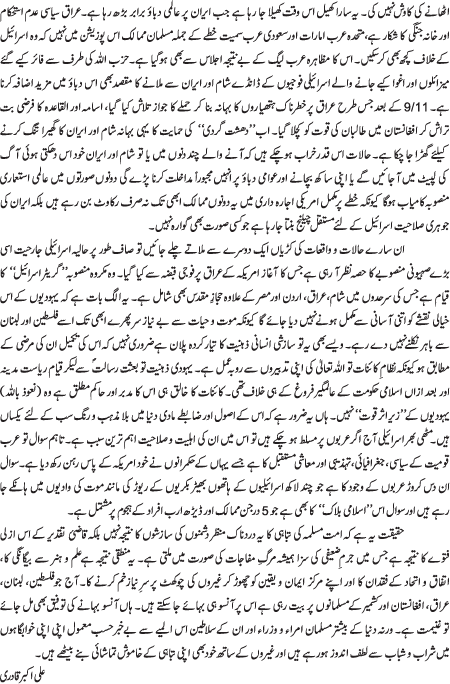 اٹھانے کی کاوش نہیں کی۔ یہ سارا کھیل اس وقت کھیلا جا رہا ہے جب ایران پر عالمی دباؤ برابر بڑھ رہا ہے۔ عراق سیاسی عدم استحکام
اور خانہ جنگی کا شکار ہے، متحدہ عرب امارات اور سعودی عرب سمیت خطے کے جملہ مسلمان ممالک اس پوزیشن میں نہیں کہ وہ اسرائیل
کے خلاف کچھ بھی کرسکیں۔ اس کا مظاہرہ عرب لیگ کے بے نتیجہ اجلاس سے بھی ہو رہا ہے۔ حزب اللہ کی طرف سے فائر کیے گئے
میزائلوں اور اغوا کیے جانے والے اسرائیلی فوجیوں کے ڈانڈے شام اور ایران سے ملانے کا مقصد بھی اس دباؤ میں مزید اضافہ کرنا
ہے۔ 9/11 کے بعد جس طرح عراق پر خطرناک ہتھیاروں کا بہانہ بنا کر حملے کا جواز تلاش کیا گیا، اسامہ اور القاعدہ کا فرضی بت
تراش کر افغانستان میں طالبان کی قوت کو کچلا گیا۔ اب ’’دہشت گردی‘‘ کی حمایت کا یہی بہانہ شام اور ایران کا گھیرا تنگ کرنے
کیلئے گھڑا جا چکا ہے۔ حالات اس قدر خراب ہوچکے ہیں کہ آنے والے چند دنوں میں یا تو شام اور ایران خود اس دھکتی ہوئی آگ
کی لپیٹ میں آجائیں گے یا اپنی ساکھ بچانے اور عوامی دباؤ پر انہیں مجبوراً مداخلت کرنا پڑے گی دونوں صورتوں میں عالمی استعماری
منصوبہ کامیاب ہوگا کیونکہ خطے پر مکمل امریکی اجارہ داری میں یہ دونوں ممالک ابھی تک نہ صرف رکاوٹ بن رہے ہیں بلکہ ایران کی
جوہری صلاحیت اسرائیل کے لئے مستقل چیلنج بنتا جا رہا ہے جو کسی صورت بھی گوارہ نہیں۔
ان سارے حالات و واقعات کی کڑیاں ایک دوسرے سے ملاتے چلے جائیں تو صاف طور پر حالیہ اسرائیلی جارحیت اسی
بڑے صہیونی منصوبے کا حصہ نظر آ رہی ہے جس کا آغاز امریکہ کے عراق پر فوجی قبضہ سے کیا گیا۔ وہ مکروہ منصوبہ ’’گریٹر اسرائیل‘‘ کا
قیام ہے جس کی سرحدوں میں شام، عراق، اردن اور مصر کے علاوہ حجازِ مقدس بھی شامل ہے۔ یہ الگ بات ہے کہ یہودیوں کے اس
خیالی نقشے کو اتنی آسانی سے مکمل ہونے نہیں دیا جائے گا کیونکہ موت و حیات سے بے نیاز سرپھرے ابھی تک اسے فلسطین اور لبنان
سے باہر نکلنے نہیں دے رہے۔ ویسے بھی یہ تو سازشی انسانی ذہنیت کا تیار کردہ پلان ہے ضروری نہیں کہ اس کی تکمیل ان کی مرضی کے
مطابق ہو کیونکہ نظام کائنات تو اللہ تعالیٰ کی اپنی تدبیروں سے رو بہ عمل ہے۔ یہودی ذہنیت تو بعثت رسالتؐ سے لیکر قیام ریاست مدینہ
اور بعد ازاں اسلامی حکومت کے عالمگیر فروغ کے ہی خلاف تھی۔ کائنات کا خالق ہی اس کا مدبر اور حاکم مطلق ہے وہ (نعوذ باللہ)
یہودیوں کے ’’زیر اثر قوت‘‘ نہیں۔ ہاں یہ ضروری ہے کہ اس کے اصول اور ضابطے مادی دنیا میں بلا مذہب و رنگ سب کے لئے یکساں
ہیں۔ مٹھی بھر اسرائیلی آج اگر عربوں پر مسلط ہو چکے ہیں تو اس میں ان کی اہلیت و صلاحیت اہم ترین سبب ہے۔ تاہم سوال تو عرب
قومیت کے سیاسی، جغرافیائی، تہذیبی اور معاشی مستقبل کا ہے جسے یہاں کے حکمرانوں نے خود امریکہ کے پاس رہن رکھ دیا ہے۔ سوال
ان دس کروڑ عربوں کے وجود کا ہے جو چند لاکھ اسرائیلیوں کے ہاتھوں بھیڑ بکریوں کے ریوڑ کی مانند موت کی وادیوں میں ہانکے جا
رہے ہیں اور سوال اس ’’اسلامی بلاک‘‘ کا بھی ہے جو 5 درجن ممالک اور ڈیڑھ ارب افراد کے ہجوم پر مشتمل ہے۔
حقیقت یہ ہے کہ امت مسلمہ کی تباہی کا یہ دردناک منظر دشمنوں کی سازشوں کا نتیجہ نہیں بلکہ قاضیٔ تقدیر کے اس ازلی
فتوے کا نتیجہ ہے جس میں جرم ضعیفی کی سزا ہمیشہ مرگِ مفاجات کی صورت میں ملتی ہے۔ یہ منطقی نتیجہ ہے علم و ہنر سے بیگانگی کا،
اتفاق و اتحاد کے فقدان کا اور اپنے مرکز ایمان و یقین کو چھوڑ کر غیروں کی چوکھٹ پر سر نیاز خم کرنے کا۔ آج جو فلسطین، لبنان،
عراق، افغانستان اور کشمیر کے مسلمانوں پر بیت رہی ہے اس پر آنسو ہی بہائے جاسکتے ہیں۔ ہاں آنسو بہانے کی توفیق بھی مل جائے
تو غنیمت ہے۔ ورنہ دنیا کے بیشتر مسلمان امراء و وزراء اور ان کے سلاطین اس المیے سے بے خبر حسب معمول اپنی اپنی خوابگاہوں
میں شراب و شباب سے لطف اندوز ہو رہے ہیں اور غیروں کے ساتھ خود بھی اپنی تباہی کے خاموش تماشائی بنے بیٹھے ہیں۔
علی اکبر قادری